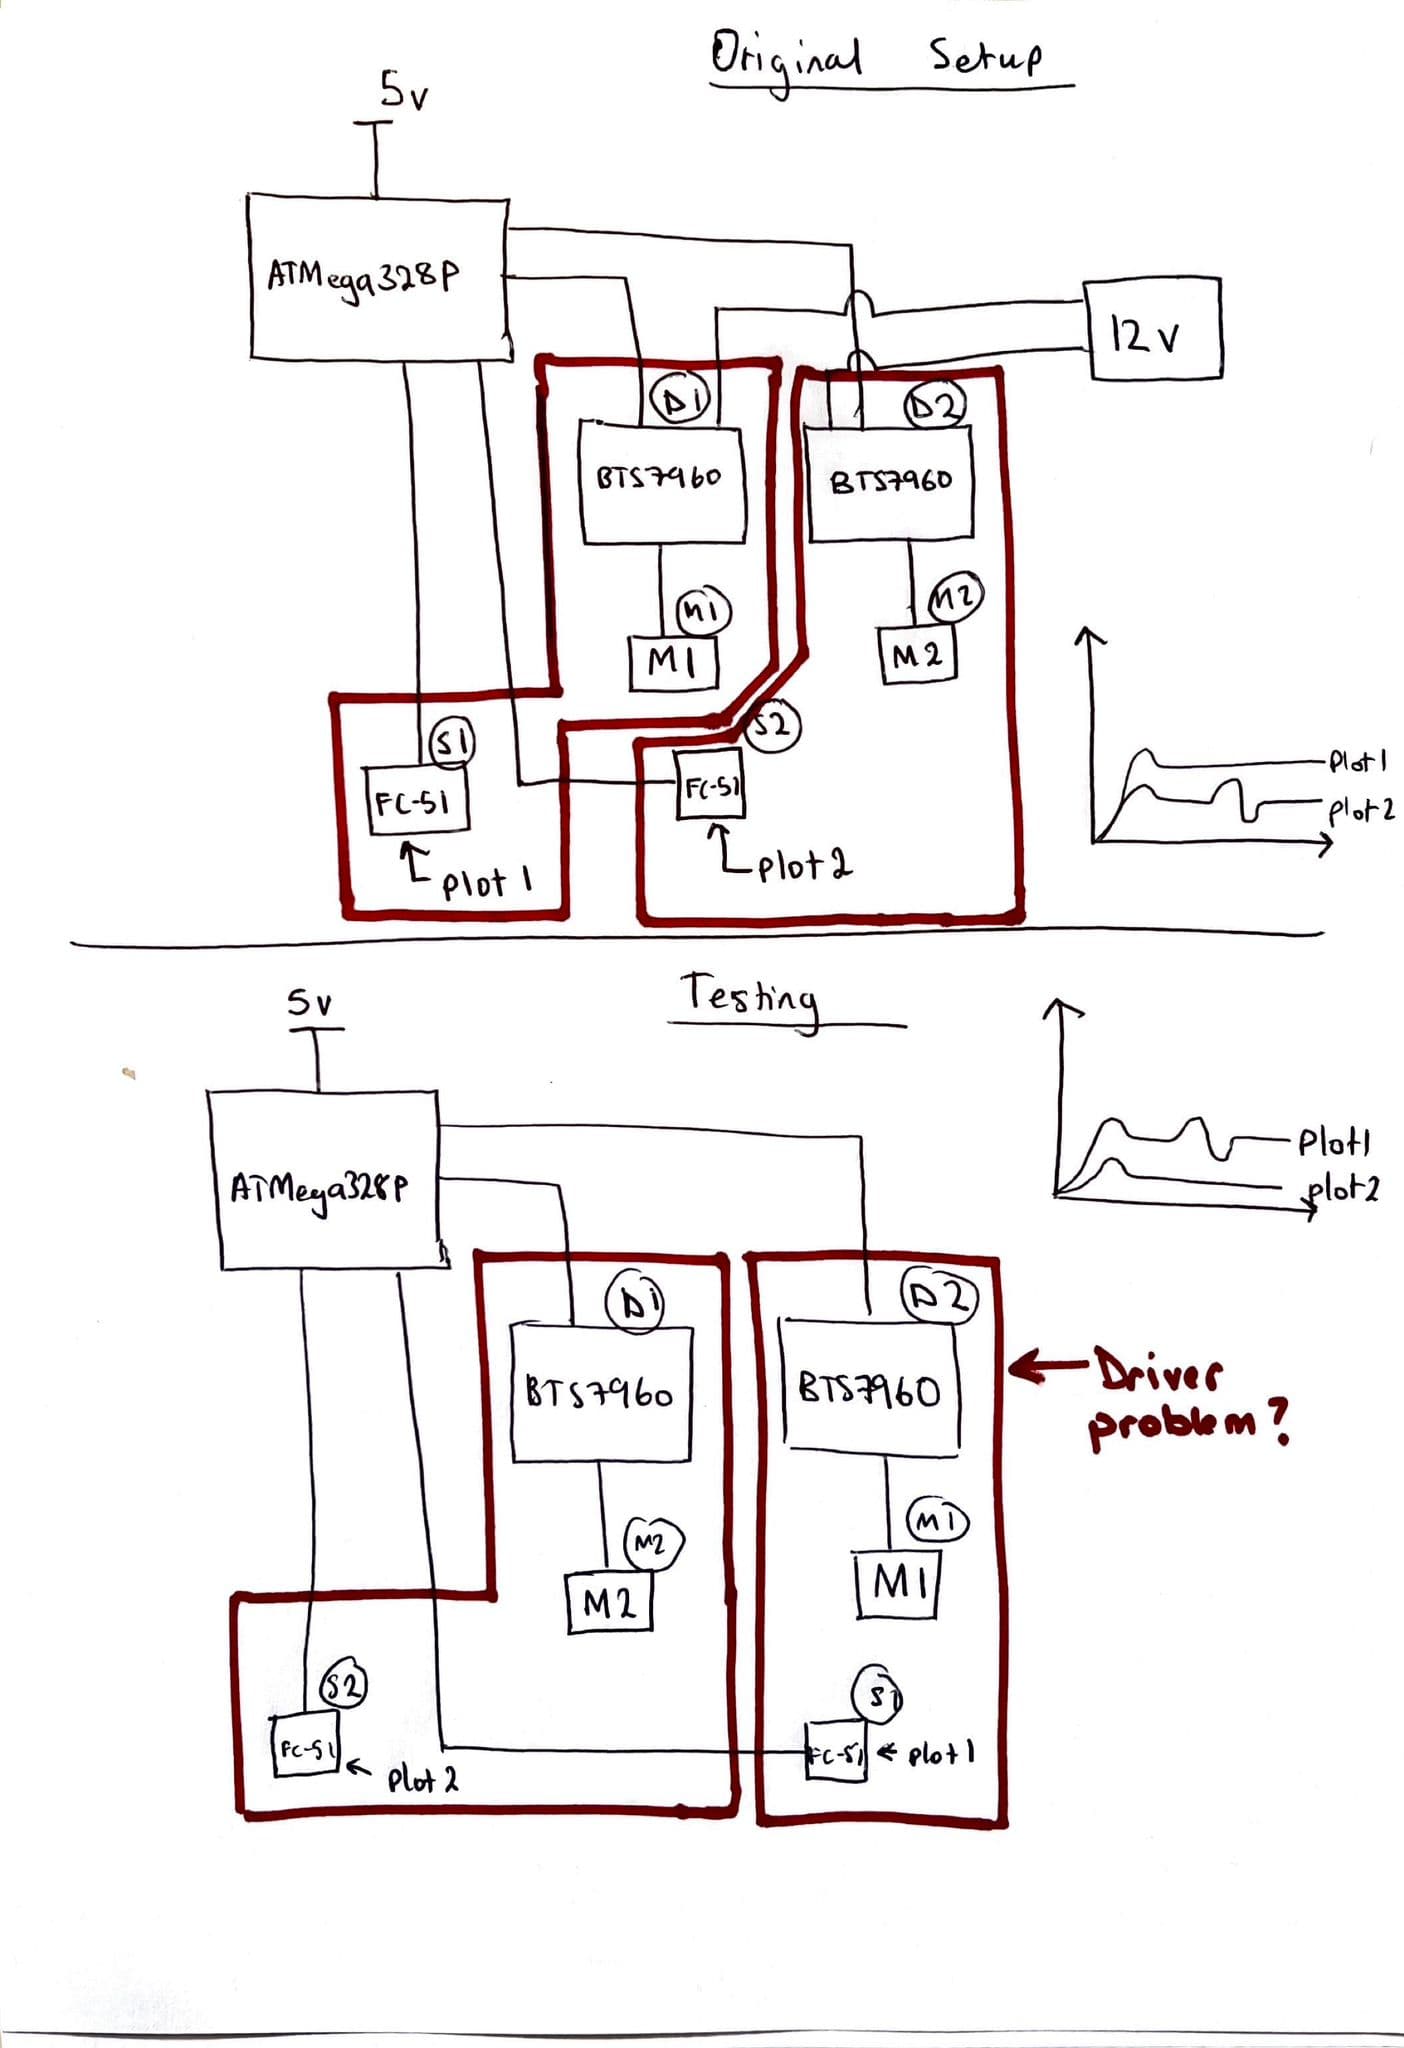 Original Setup
5v
ATMega328P
12 v
D1
D2
BTS7960
BTS7960
M1
M2
M1
M2
S1
S2
FC-51
FC-51
plot 1
plot 2
Plot1
plot2
Testing
5v
Plot1
plot2
ATMega328P
D1
D2
BTS7960
BTS7960
Driver
problem?
M2
M1
M2
M1
S2
S1
FC-51
FC-51
plot1
plot 2